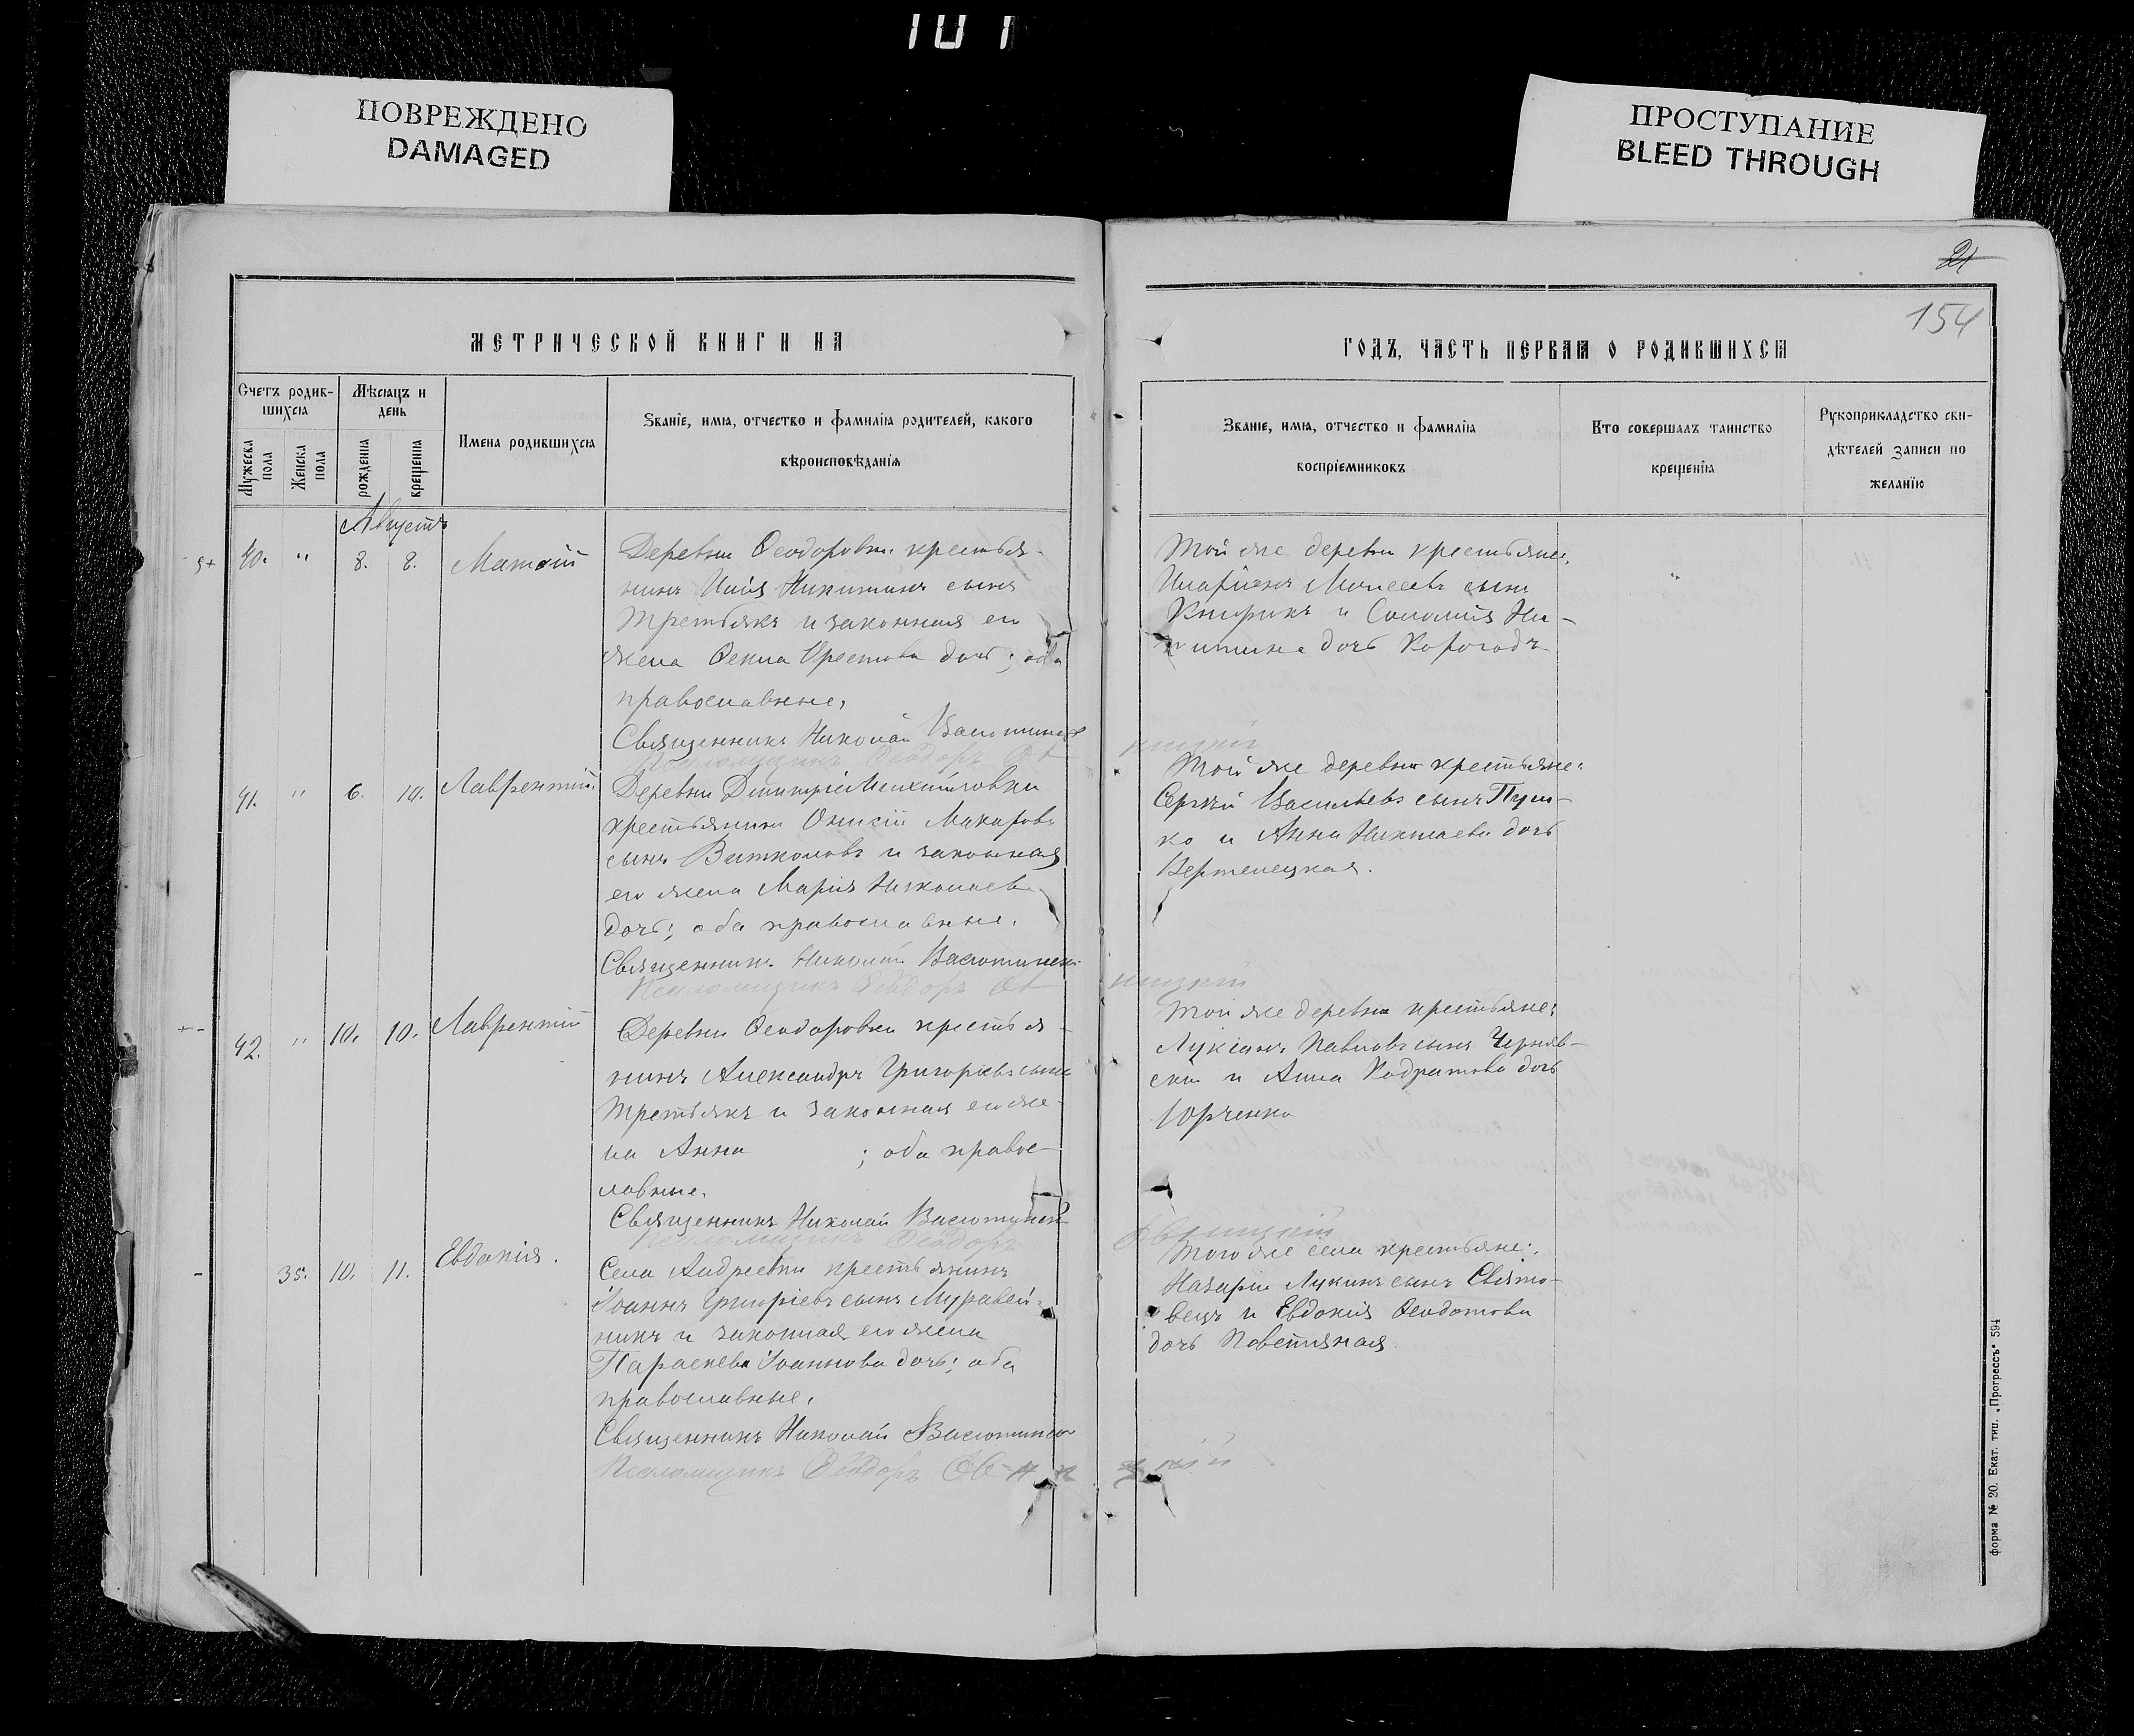 101
ПОВРЕЖДЕНО
DAMAGED
ПРОСТУПАНИЕ
BLEED THROUGH
21
154
МЕТРИЧЕСКОЙ КНИГИ НА
ГОДЪ, ЧАСТЬ ПЕРВАЯ О РОДИВШИХСЯ
Счетъ родив-
шихся
Мѣсяцъ и
день
Имена родившихся
Званіе, имя, отчество и фамилія родителей, какого
вѣроисповѣданія
Мужеска
пола
Женска
пола
рожденія
крещенія
Званіе, имя, отчество и фамилія
воспріемниковъ
Кто совершалъ таинство
крещенія
Рукоприкладство сви-
дѣтелей записи по
желанію
Августъ
40. " 8. 8. Матѳій
Деревни Ѳеодоровки крестья-
нинъ Никитинъ сынъ
Третьякъ и законная его
жена Ѳекла Орестова дочь; оба
православные.
Священникъ Николай Васютинскій
Псаломщикъ Ѳеодоръ
Той же деревни крестьяне:
Иларіонъ Моисеевъ сынъ
Кнорикъ и Соломія Ни-
китина дочь Корогодъ
41. " 6. 10. Лаврентій.
Деревни
крестьянинъ Онисій Макаровъ
сынъ Витколовъ и законная
его жена Марія Николаева
дочь; оба православные.
Священникъ Николай Васютинскій
Псаломщикъ Ѳеодоръ
Той же деревни крестьяне:
Сергѣй Васильевъ сынъ Пуш-
ко и Анна Николаева дочь
Вертелецкая.
42. " 10. 10. Лаврентій
Деревни Ѳеодоровки крестья-
нинъ Александръ Григорьевъ сынъ
Третьякъ и законная его же-
на Анна ; оба право-
славные.
Священникъ Николай Васютинскій
Псаломщикъ Ѳеодоръ
Той же деревни крестьяне:
Лукіанъ Павловъ сынъ Черняв-
скій и Анна Кодратова дочь
Юрченко
35. 10. 11. Евдокія.
Села Андреевки крестьянинъ
Іоаннъ Григорьевъ сынъ Муравей-
никъ и законная его жена
Параскева Іоаннова дочь; оба
православные.
Священникъ Николай Васютинскій
Псаломщикъ Ѳеодоръ
Того же села крестьяне:
Назарій Лукинъ сынъ Свято-
вецъ и Евдокія Ѳеодотова
дочь Поветяная.
форма № 20. Екат. тип. „Прогрессъ" 594